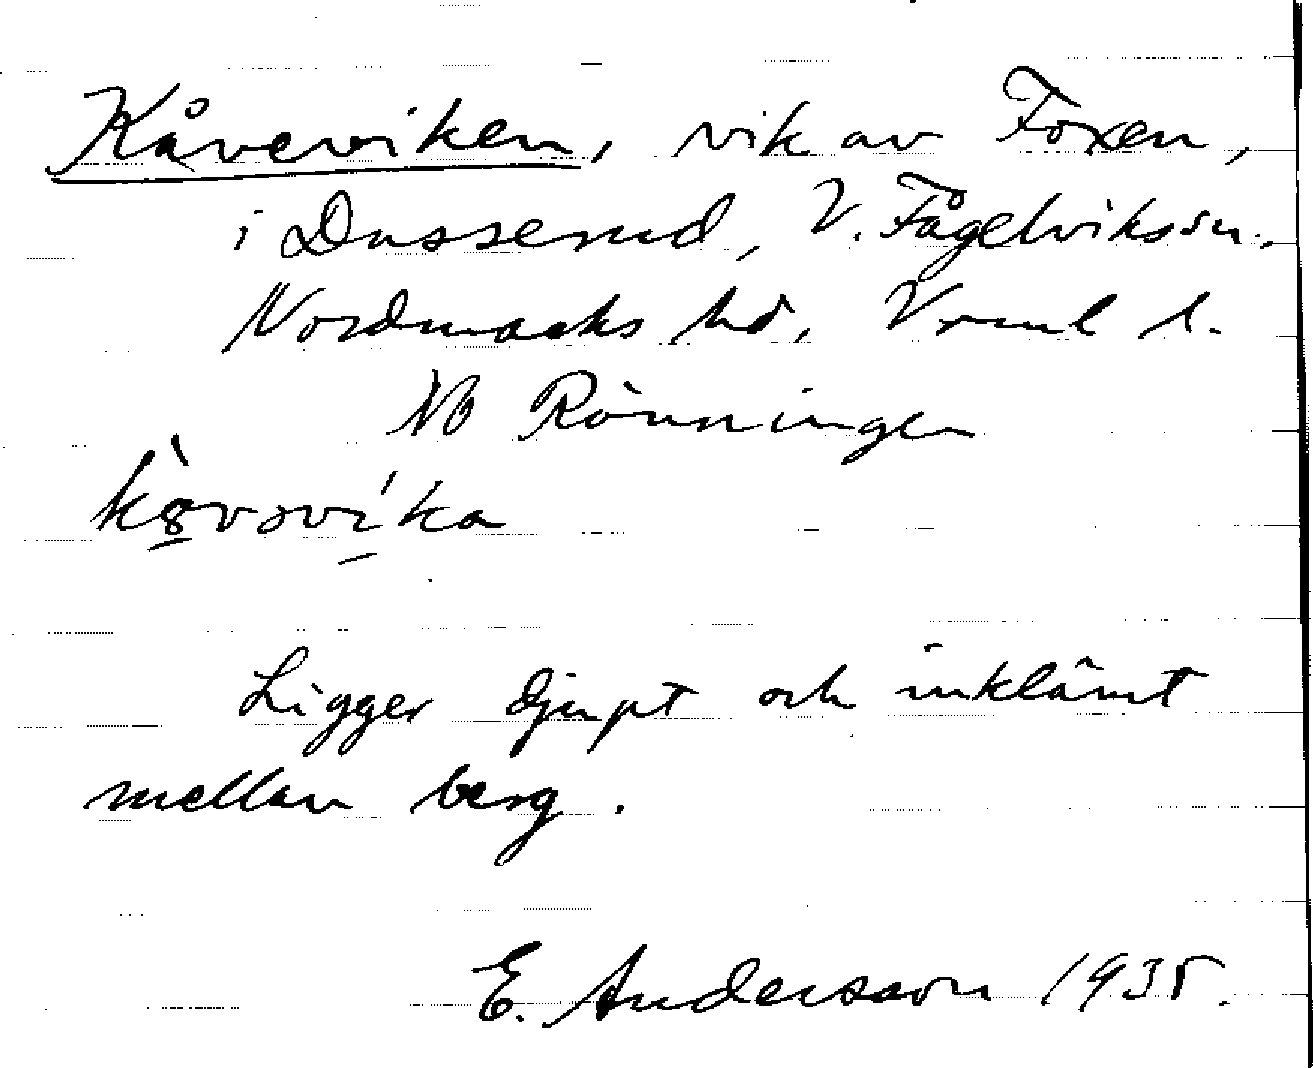 Kåveviken, vik av Foxen,
i Dusserud, V. Fågelviks sn.,
Nordmarks hd, Vrml l.
NO Rönningen
Ligger djupt och inklämt
mellan berg.
E. Andersson 1935.